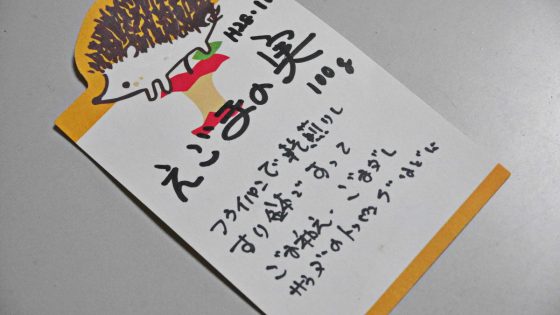 H28.11
えごまの実
100g
フライパンで乾煎りし
すり鉢ですって
ごま和え、ごまダレ
サラダのトッピングなどに